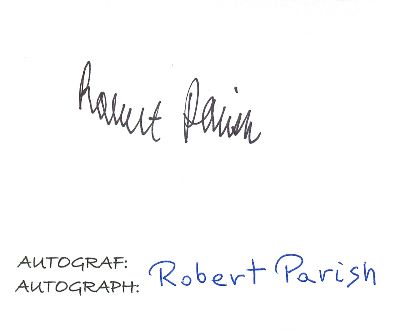 Robert Parish
AUTOGRAF:
AUTOGRAPH: Robert Parish